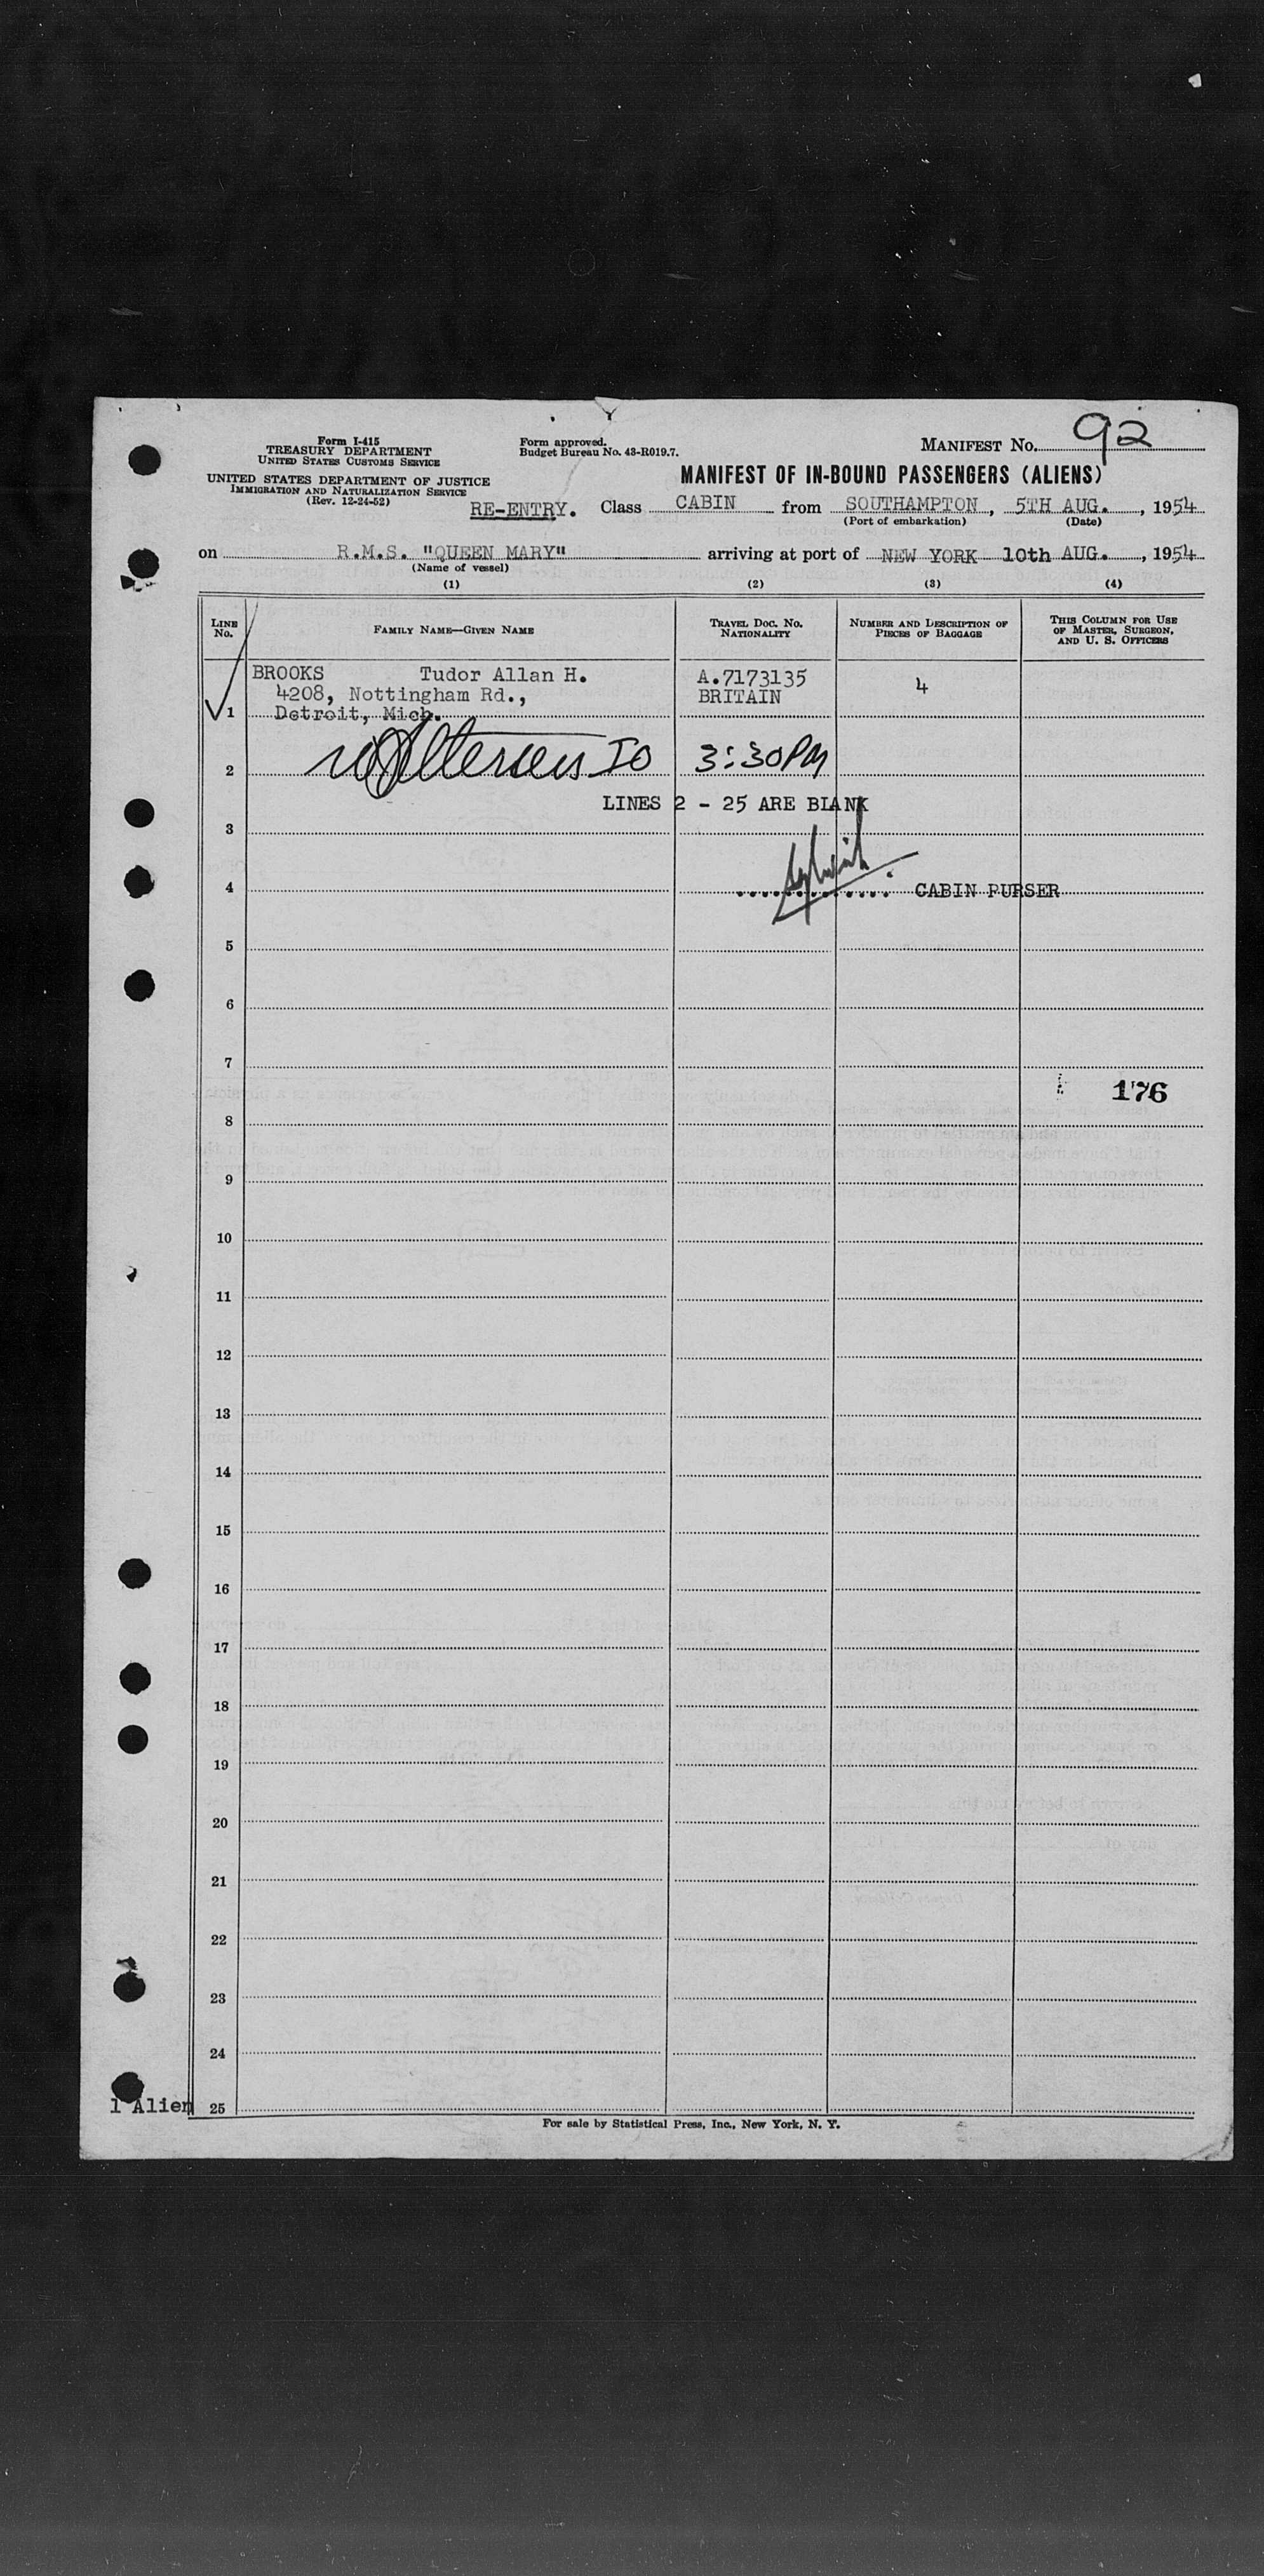 Form I-415
TREASURY DEPARTMENT
UNITED STATES CUSTOMS SERVICE
UNITED STATES DEPARTMENT OF JUSTICE
IMMIGRATION AND NATURALIZATION SERVICE
(Rev. 12-24-52)
Form approved.
Budget Bureau No. 43-R019.7.
MANIFEST No. 92
MANIFEST OF IN-BOUND PASSENGERS (ALIENS)
RE-ENTRY. Class CABIN from SOUTHAMPTON, 5TH AUG., 1954
(Port of embarkation) (Date)
on R.M.S. "QUEEN MARY" arriving at port of NEW YORK 10th AUG., 1954
(Name of vessel)
(1) (2) (3) (4)
LINE No. FAMILY NAME—GIVEN NAME TRAVEL DOC. No. NATIONALITY NUMBER AND DESCRIPTION OF PIECES OF BAGGAGE THIS COLUMN FOR USE OF MASTER, SURGEON, AND U. S. OFFICERS
BROOKS Tudor Allan H. A.7173135 4
4208, Nottingham Rd., BRITAIN
1 Detroit, Mich.
2 IO 3:30PM
LINES 2 - 25 ARE BLANK
3
4 CABIN PURSER
5
6
7
176
8
9
10
11
12
13
14
15
16
17
18
19
20
21
22
23
24
1 Alien 25
For sale by Statistical Press, Inc., New York, N. Y.